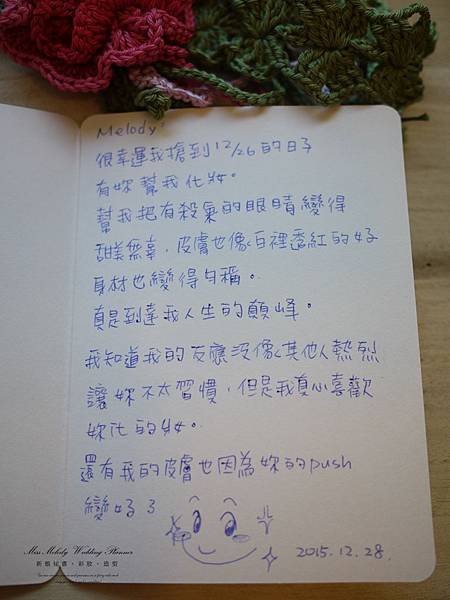 Melody:
很幸運我搶到12/26的日子
有妳幫我化妝。
幫我把有殺氣的眼睛變得
甜美無辜，皮膚也像白裡透紅的好
身材也變得勻稱。
真是到達我人生的顛峰。
我知道我的反應沒像其他人熱烈
讓妳不太習慣，但是我真心喜歡
妳化的妝。
還有我的皮膚也因為妳的push
變好了
2015.12.28.
Miss Melody Wedding Planner
新娘秘書・彩妝・造型